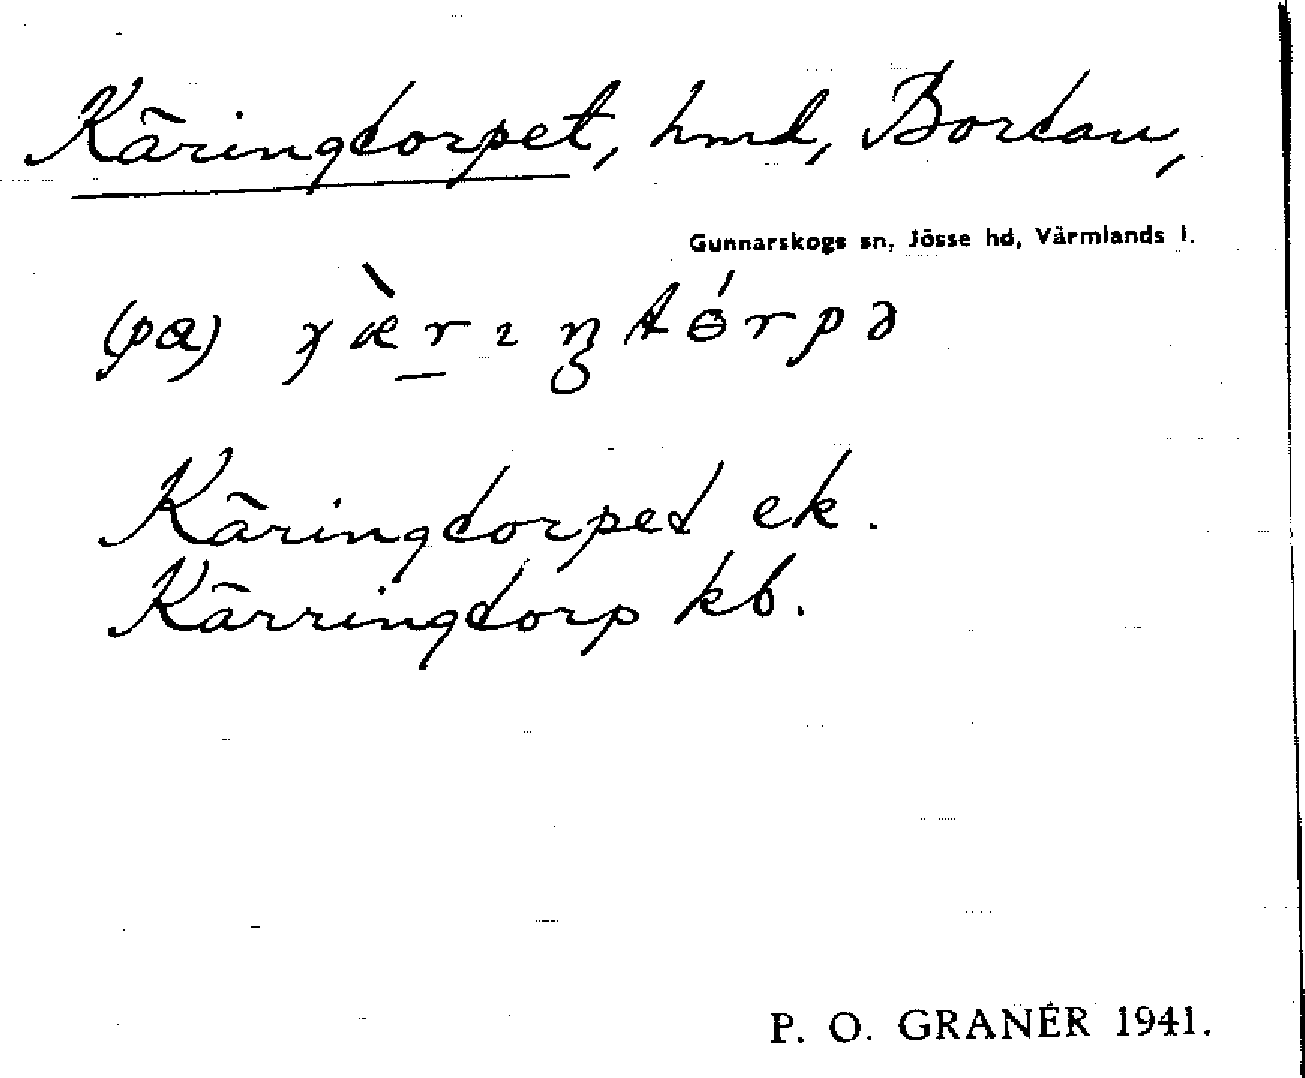 Käringtorpet, hmd, Bortan,
Gunnarskogs sn, Jösse hd, Värmlands l.
(pa)
Käringtorpet ek.
Kärringtorp kb.
P. O. GRANÉR 1941.